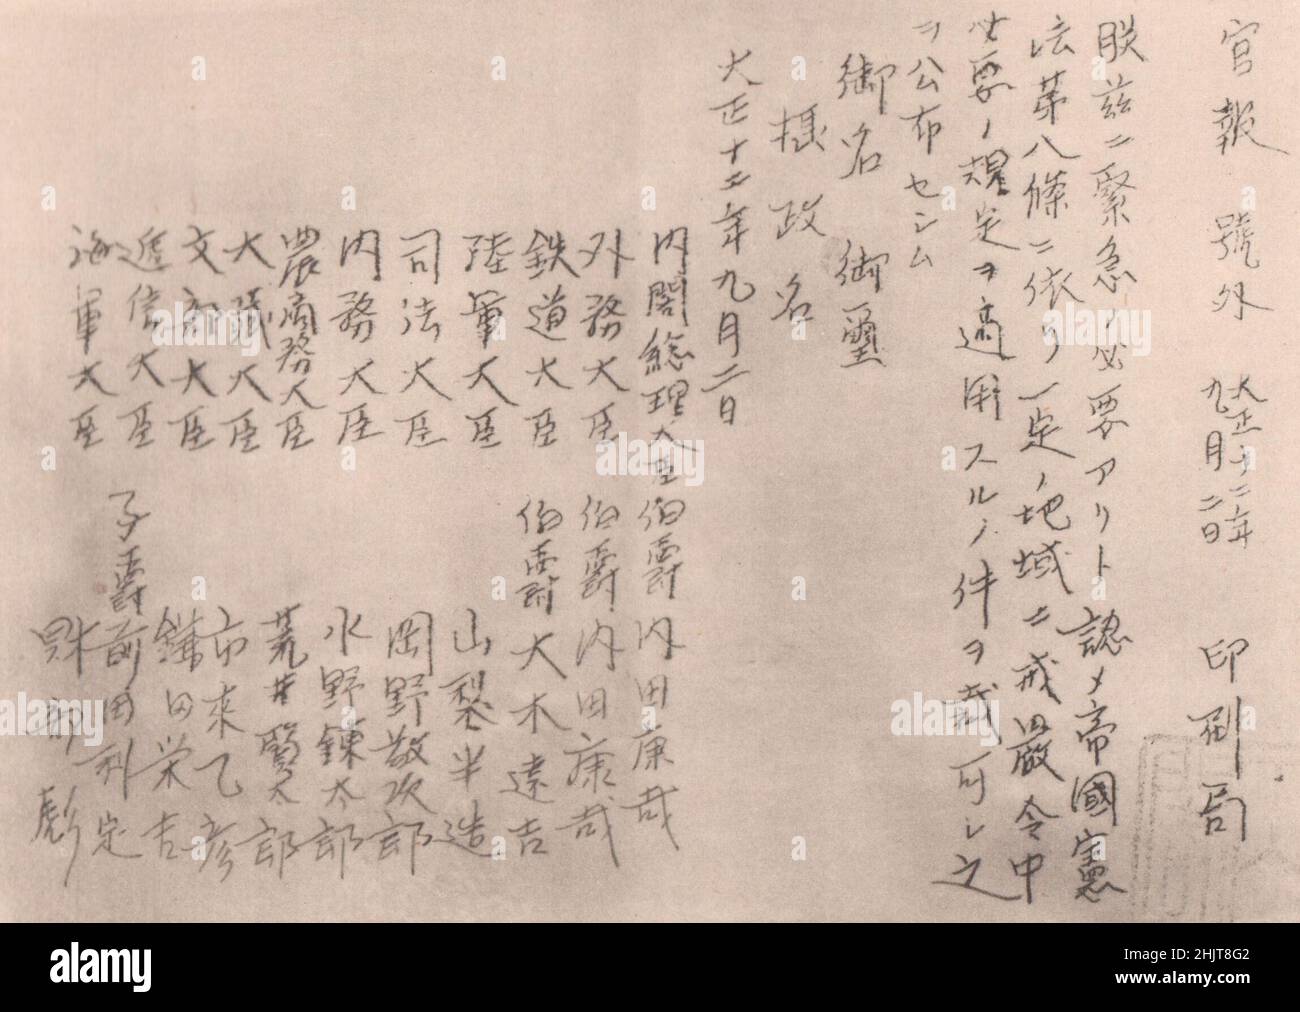 官報 號外 大正十二年九月二日 印刷局
朕茲ニ緊急ノ必要アリト認メ帝國憲
法第八條ニ依リ一定ノ地域ニ戒嚴令中
必要ノ規定ヲ適用スルノ件ヲ裁可シ之
ヲ公布セシム
御名 御璽
攝政名
大正十二年九月二日
内閣総理大臣伯爵内田康哉
外務大臣 伯爵内田康哉
鉄道大臣 伯爵大木遠吉
陸軍大臣 山梨半造
司法大臣 岡野敬次郎
内務大臣 水野錬太郎
農商務大臣 荒井賢太郎
大藏大臣 市来乙彦
文部大臣 鎌田栄吉
逓信大臣 子爵前田利定
海軍大臣 財部彪
alamy
Image ID: 2HJT8G2
www.alamy.com